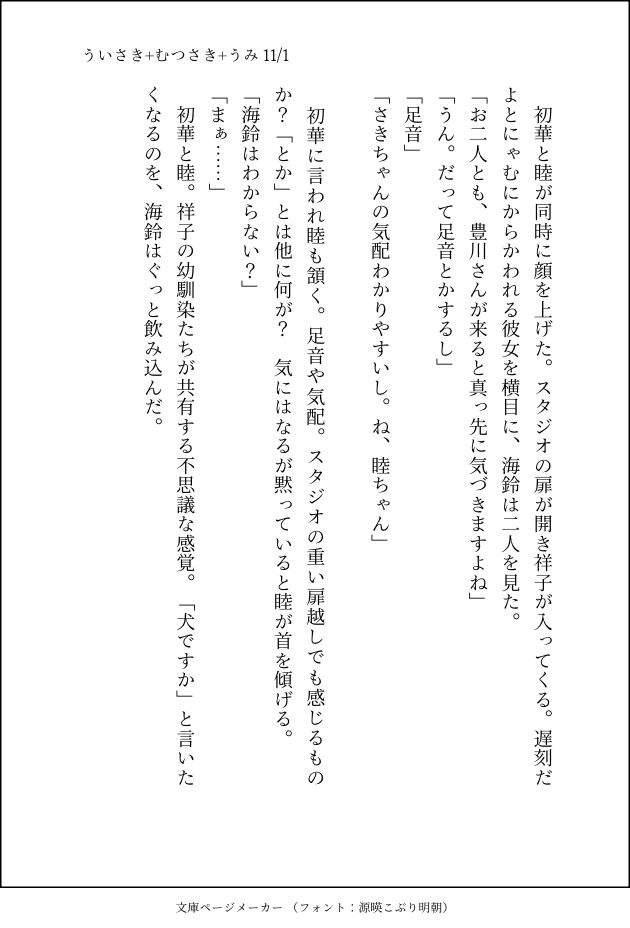 ういさき+むつさき+うみ 11/1
　初華と睦が同時に顔を上げた。スタジオの扉が開き祥子が入ってくる。遅刻だ
よとにゃむにからかわれる彼女を横目に、海鈴は二人を見た。
「お二人とも、豊川さんが来ると真っ先に気づきますよね」
「うん。だって足音とかするし」
「足音」
「さきちゃんの気配わかりやすいし。ね、睦ちゃん」
　初華に言われ睦も頷く。足音や気配。スタジオの重い扉越しでも感じるもの
か？「とか」とは他に何が？　気にはなるが黙っていると睦が首を傾げる。
「海鈴はわからない？」
「まぁ……」
　初華と睦。祥子の幼馴染たちが共有する不思議な感覚。「犬ですか」と言いた
くなるのを、海鈴はぐっと飲み込んだ。
文庫ページメーカー（フォント：源暎こぶり明朝）